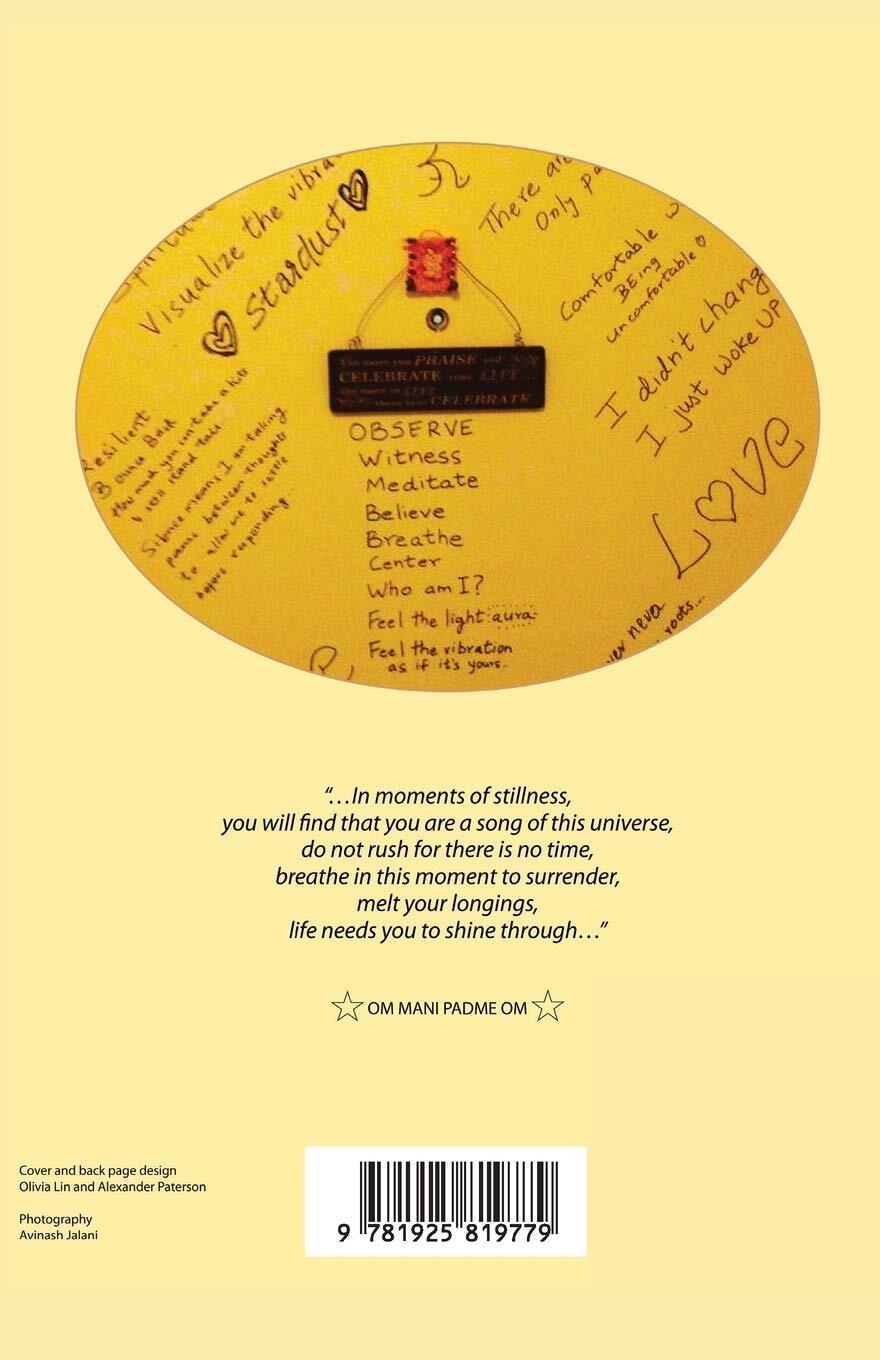 Visualize the
Stardust
There
Only
Comfortable
BEing
uncomfortable
I didn't
I just woke UP
LOVE
The more you PRAISE and
CELEBRATE your LIFE...
the more in LIFE
there is to CELEBRATE
OBSERVE
Witness
Meditate
Believe
Breathe
Center
Who am I?
Feel the light aura
Feel the vibration
as if it's yours.
Resilient
Bounce Back
How much you can take
& still stand tall.
Silence means I am taking
pause between thoughts
to allow me to settle
before responding...
never
roots...
“...In moments of stillness,
you will find that you are a song of this universe,
do not rush for there is no time,
breathe in this moment to surrender,
melt your longings,
life needs you to shine through...”
OM MANI PADME OM
Cover and back page design
Olivia Lin and Alexander Paterson
Photography
Avinash Jalani
9 781925 819779